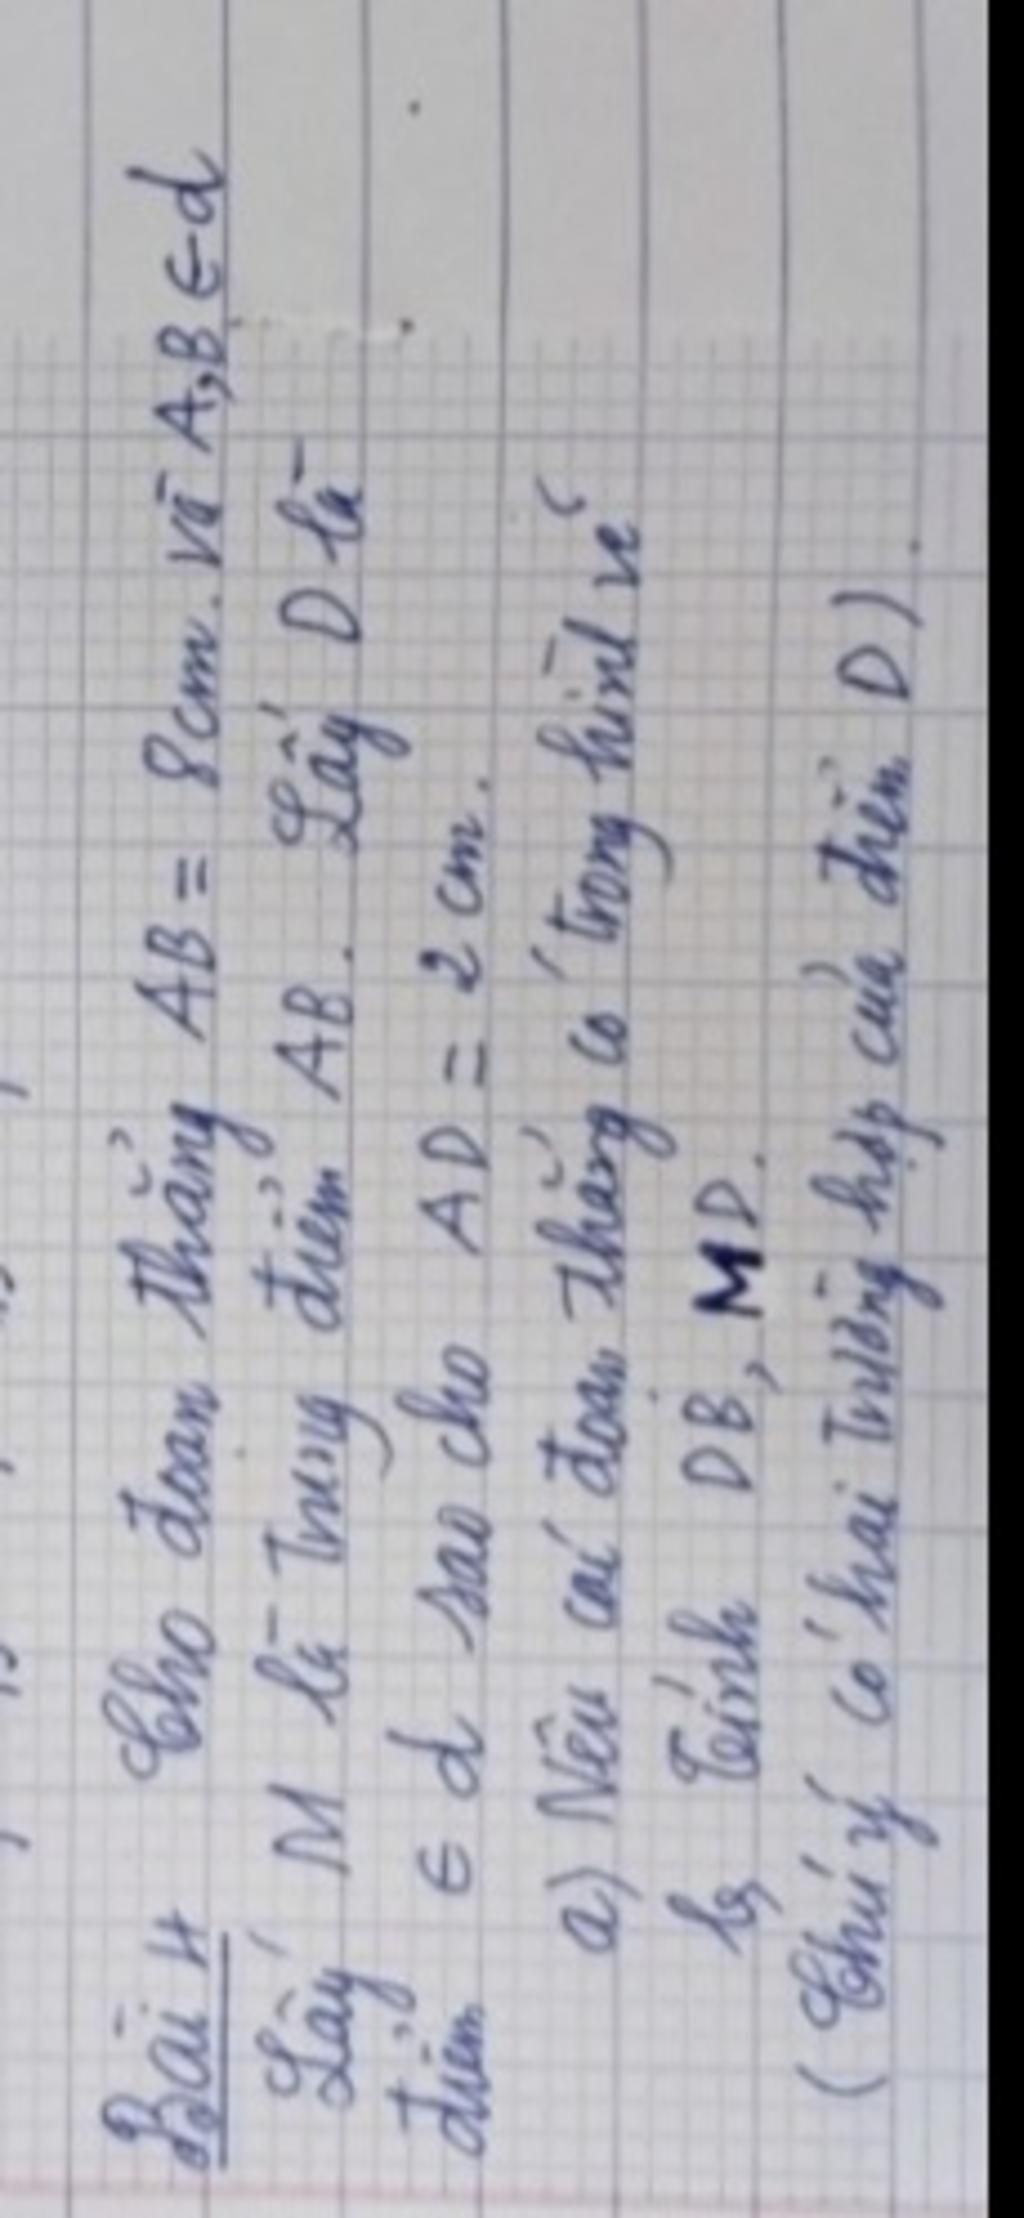 Bài 4 Cho đoạn thẳng AB = 8cm. và A,B ∈ d
Lấy M là trung điểm AB. Lấy D là
điểm ∈ d sao cho AD = 2 cm.
a) Nêu các đoạn thẳng có trong hình vẽ
b, Tính DB, MD.
(Chú ý có hai trường hợp của điểm D).